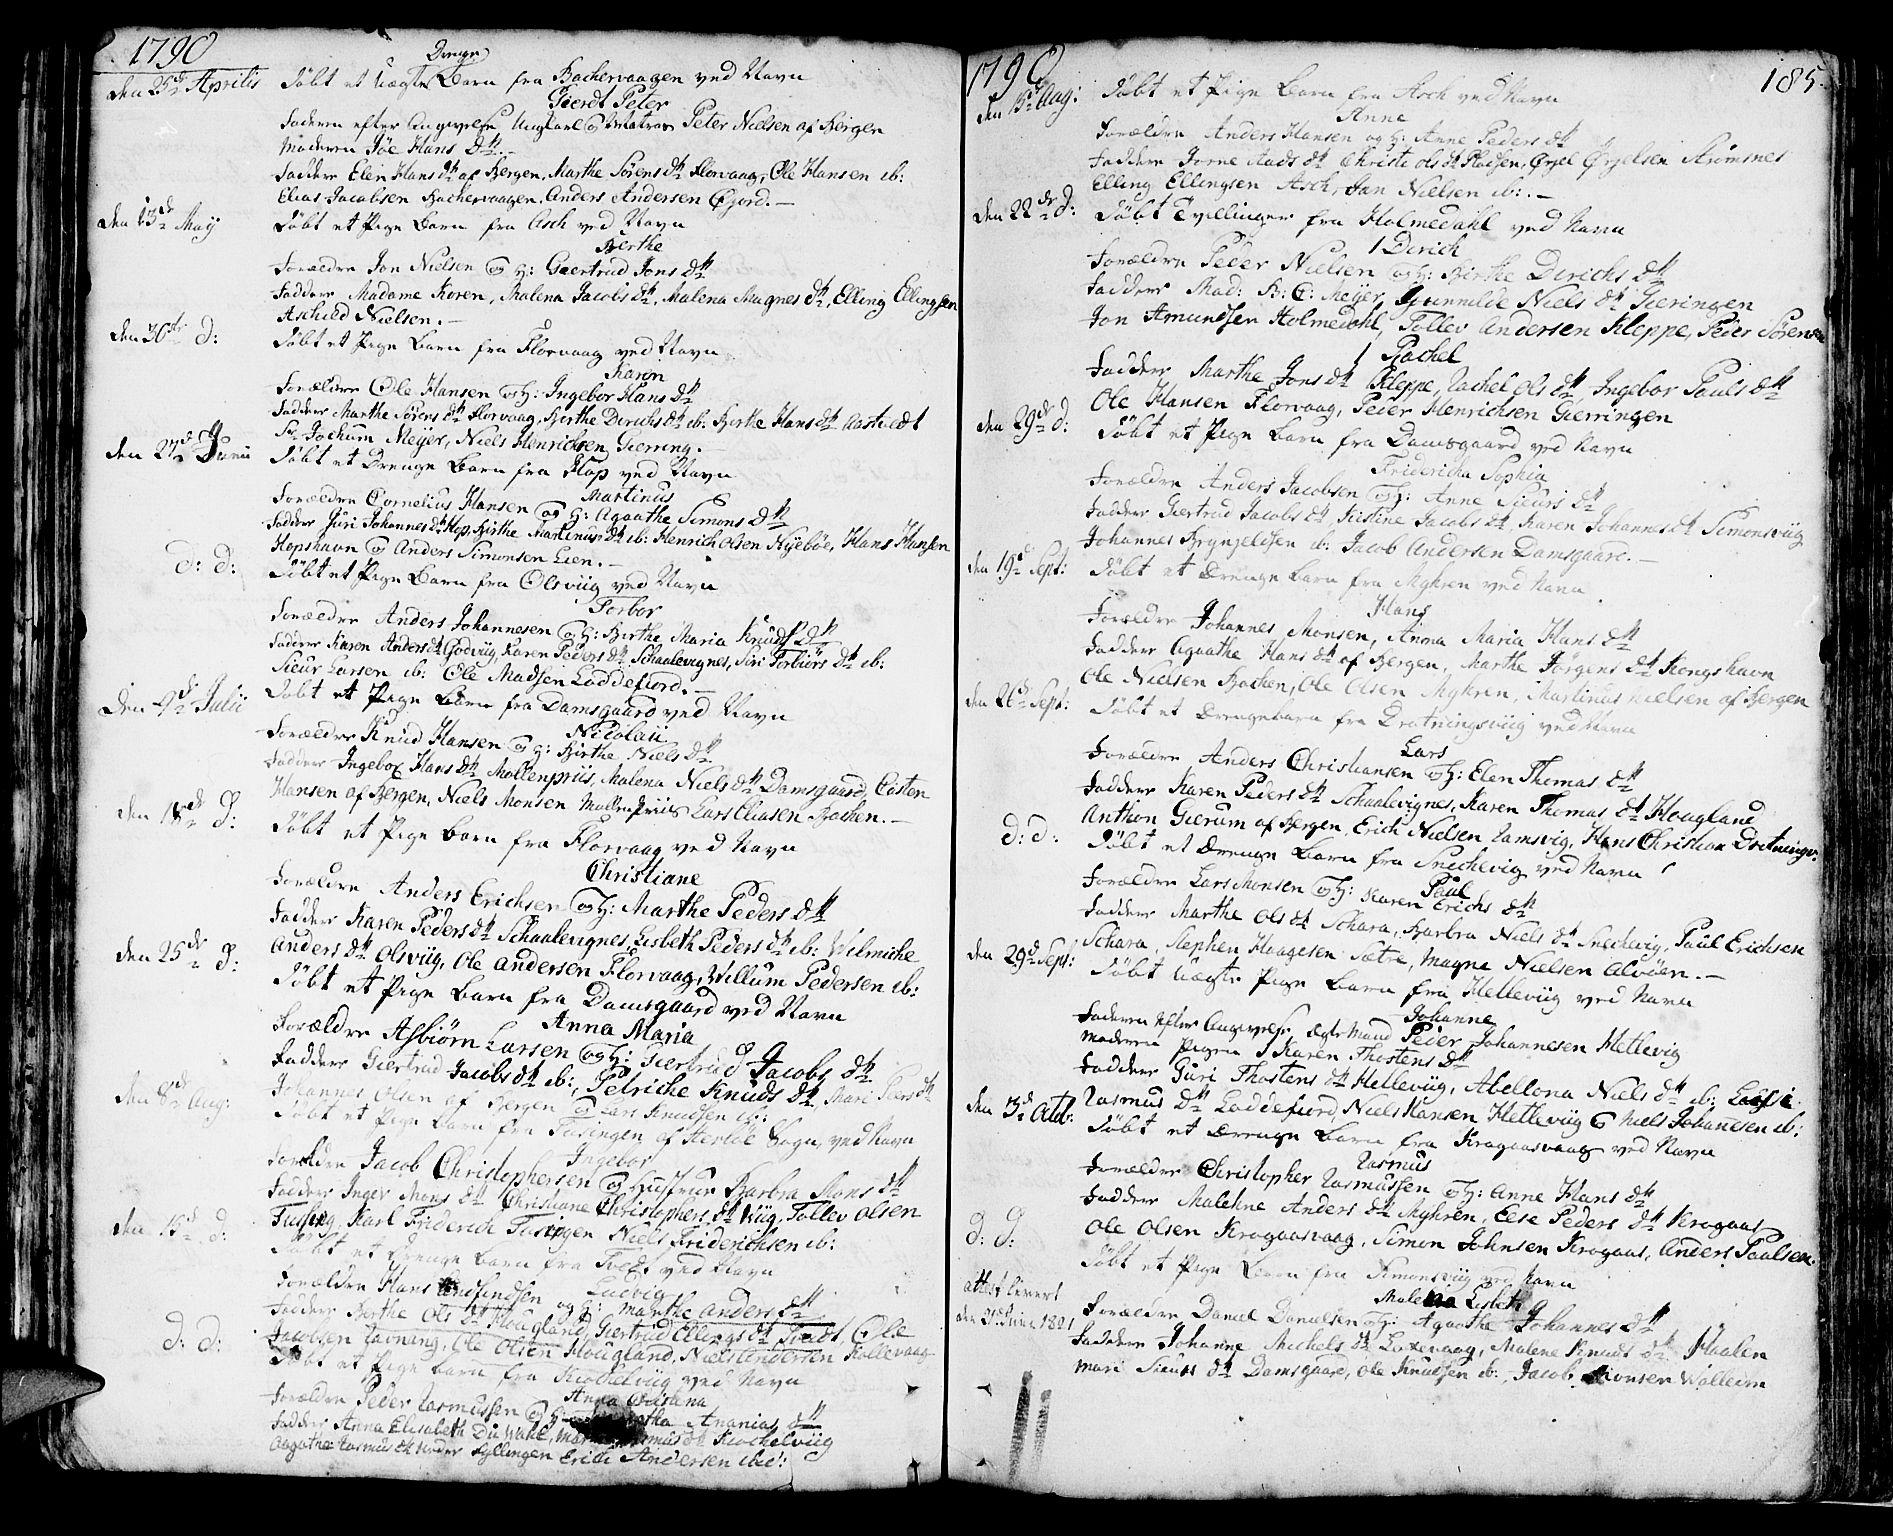 1790
den 25de Aprilis Døbt et Uægte Drenge Barn fra Bachervaagen ved Navn
Gierdt Peter
Faderen efter Angivelse Ungkarl og Matros Peter Nielsen af Bergen
Moderen Siøe Hans Dtr.
Faddere Elen Hans dtr af Bergen, Marthe Sørens dtr Florvaag, Ole Hansen ib:
Elias Jacobsen Bachervaagen, Anders Andersen Øfjord.
den 13de Maij Døbt et Pige Barn fra Asch ved Navn
Berthe
Forældre Jon Nielsen og H: Giertrud Jons Dtr
Faddere Madame Koren, Malena Jacobs dtr, Malena Magnes dtr, Elling Ellingsen
Aschild Nielsen.
den 30te d: Døbt et Pige Barn fra Florvaag ved Navn
Karen
Forældre Ole Hansen og H: Ingebor Hans Dtr
Faddere Marthe Sørens dtr Florvaag, Birthe Dirichs dtr ib: Birthe Hans dtr
Sr Jochum Meyer, Niels Henrichsen Gierring.
den 27de Junii Døbt et Drenge Barn fra Hop ved Navn
Martinus
Forældre Cornelius Hansen og H: Agaathe Simons Dtr
Faddere Juri Johannes dtr Hop, Birthe Martinus dtr ib: Henrich Olsen Nyebøe, Hans Hansen
Hopshavn og Anders Simonsen Lien.
d: d: Døbt et Pige Barn fra Olsviig ved Navn
Torbor
Forældre Anders Johannesen og H: Birthe Maria Knuds Dtr
Faddere Karen Anders dtr Godviig, Karen Peders dtr Schaalevignes, Siri Torbiørs Dtr ib:
Sieur Larsen ib: Ole Madsen Loddefiord.
Den 4de Julii Døbt et Pige Barn fra Damsgaard ved Navn
Nicolaii
Forældre Knud Hansen og H: Birthe Niels Dtr
Faddere Ingebor Hans dtr Møllenpriis, Malena Niels dtr Damsgaard, Casten
Hansen af Bergen, Niels Monsen Møllenpriis Lars Eliasen Backen.
den 18de d: Døbt et Pige Barn fra Florvaag ved Navn
Christiane
Forældre Anders Erichsen og H: Marthe Peders Dtr
Faddere Karen Peders dtr Schaalevignes, Lisbeth Peders dtr ib: Wilmiche
Anders dtr Olsviig, Ole Andersen Florvaag, Willum Pedersen ib:
den 25de d: Døbt et Pige Barn fra Damsgaard ved Navn
Anna Maria
Forældre Asbiørn Larsen og H: Giertrud Jacobs Dtr
Faddere Giertrud Jacobs dtr ib:, Petriche Knuds dtr, Mari Piers dtr
Johannes Olsen af Bergen og Lars Knudsen ib:
den 8de Aug: Døbt et Pige Barn fra Turingen af Herløe Sogn, ved Navn
Ingebor
Forældre Jacob Christophersen og Hustrue Barbra Mons Dtr
Faddere Inger Mons dtr Christiane Christophers dtr Wiig, Tollev Olsen
Karl Friderich Niels Friderichsen ib:
den 15de d: Døbt et Drenge Barn fra Tvedt ved Navn
Ludvig
Forældre Hans og H: Marthe Anders Dtr
Faddere Berthe Ols dtr Hougland, Giertrud Ellings dtr Tvedt, Ole
Jacobsen Ravning, Ole Olsen Hougland, Niels Andersen Kollevaag
d: d: Døbt et Pige Barn fra Kiochelviig ved Navn
Anna Christena
Forældre Peder Rasmussen og H: Ananias Dtr
Faddere Anna Elisabeth Du Wahl, Rasmus dtr Kiochelviig
Aagatha Rasmus dtr Hyllingen Erich Andersen ibid:
1790 185.
den 15de Aug: Døbt et Pige Barn fra Asch ved Navn
Anne
Forældre Anders Hansen og H: Anne Peders dtr
Faddere Jorne Aads dtr Christi Ols dtr Pladsen, Ørjel Ørjelsen Strømsnes
Elling Ellingsen Asch, Jan Nielsen ib:.
den 22de d: Døbt Tvillinger fra Holmedahl ved Navn
1 Dirich
Forældre Peder Nielsen og H: Birthe Dirichs dtr
Faddere Mad: B: C: Meyer, Gunnilde Niels dtr Gieringen
Jon Amundsen Holmedahl, Tollev Andersen Kleppe, Peder Sørensen
1 Rachel
Faddere Marthe Jons dtr Kleppe, Rachel Ols dtr Ingebor Pauls dtr
Ole Hansen Florvaag, Peder Henrichsen Gierringen
den 29de d: Døbt et Pige Barn fra Damsgaard ved Navn
Fridericha Sophia
Forældre Anders Jacobsen og H: Anne Sieurs dtr
Faddere Giertrud Jacobs dtr, Kistine Jacobs dtr, Karen Johannes dtr Simonsviig
Johannes Brynjeldsen ib: Jacob Andersen Damsgaard.
den 19de Sept: Døbt et Drenge Barn fra Myhren ved Navn
Hans
Forældre Johannes Monsen, Anna Maria Hans dtr
Faddere Agaathe Hans dtr af Bergen, Marthe Jørgens dtr Kongshavn
Ole Nielsen Backen, Ole Olsen Myhren, Martinus Nielsen af Bergen
den 26de Sept: Døbt et Drengebarn fra Drotningsviig ved Navn
Lars
Forældre Anders Christiansen og H: Elen Thomas dtr
Faddere Karen Peders dtr Schaalevignes, Karen Thomas dtr Hougland
Anthon Gierum af Bergen, Erich Nielsen Ramsvig, Hans Christian Drotningv:
d: d: Døbt et Drenge Barn fra Snechevig ved Navn
Paul
Forældre Lars Monsen og H: Karen Erichs dtr
Faddere Marthe Ols dtr Schara, Barbra Niels dtr Snechevig, Paul Erichsen
Schara, Stephen Haagesen Sætre, Magne Nielsen Alvøen.
den 29de Sept: Døbt Uægte Pige Barn fra Hetleviig ved Navn
Johanne
Faderen efter Angivelse, Ægte Mand Peder Johannesen Hetlevig
Moderen Pigen Karen Thostens Dtr
Faddere Guri Thostens dtr Hetleviig, Abellona Niels dtr ib:
Rasmus Dtr Loddefiord, Niels Hansen Hetleviig og Niels Johannesen ib:
den 3de Oct: Døbt et Drenge Barn fra Krogaasvaag ved Navn
Rasmus
Forældre Christopher Rasmussen og H: Anne Hans dtr
Faddere Malehne Anders dtr Myhren, Else Peders dtr Krogaas
Ole Olsen Krogaasvaag, Simon Johnsen Krogaas, Anders Paulsen.
d: d: Døbt et Pige Barn fra Simonsviig ved Navn
Malena Lisbeth
Attest levert
den 21 Juni 1821
Forældre Daniel Danielsen og H: Agaathe Johannes dtr
Faddere Johanne Michels dtr Loxevaag, Malene Knuds dtr Haalen
Mari Sieurs dtr Damsgaard, Ole Knudsen ib:, Jacob Monsen Walleim